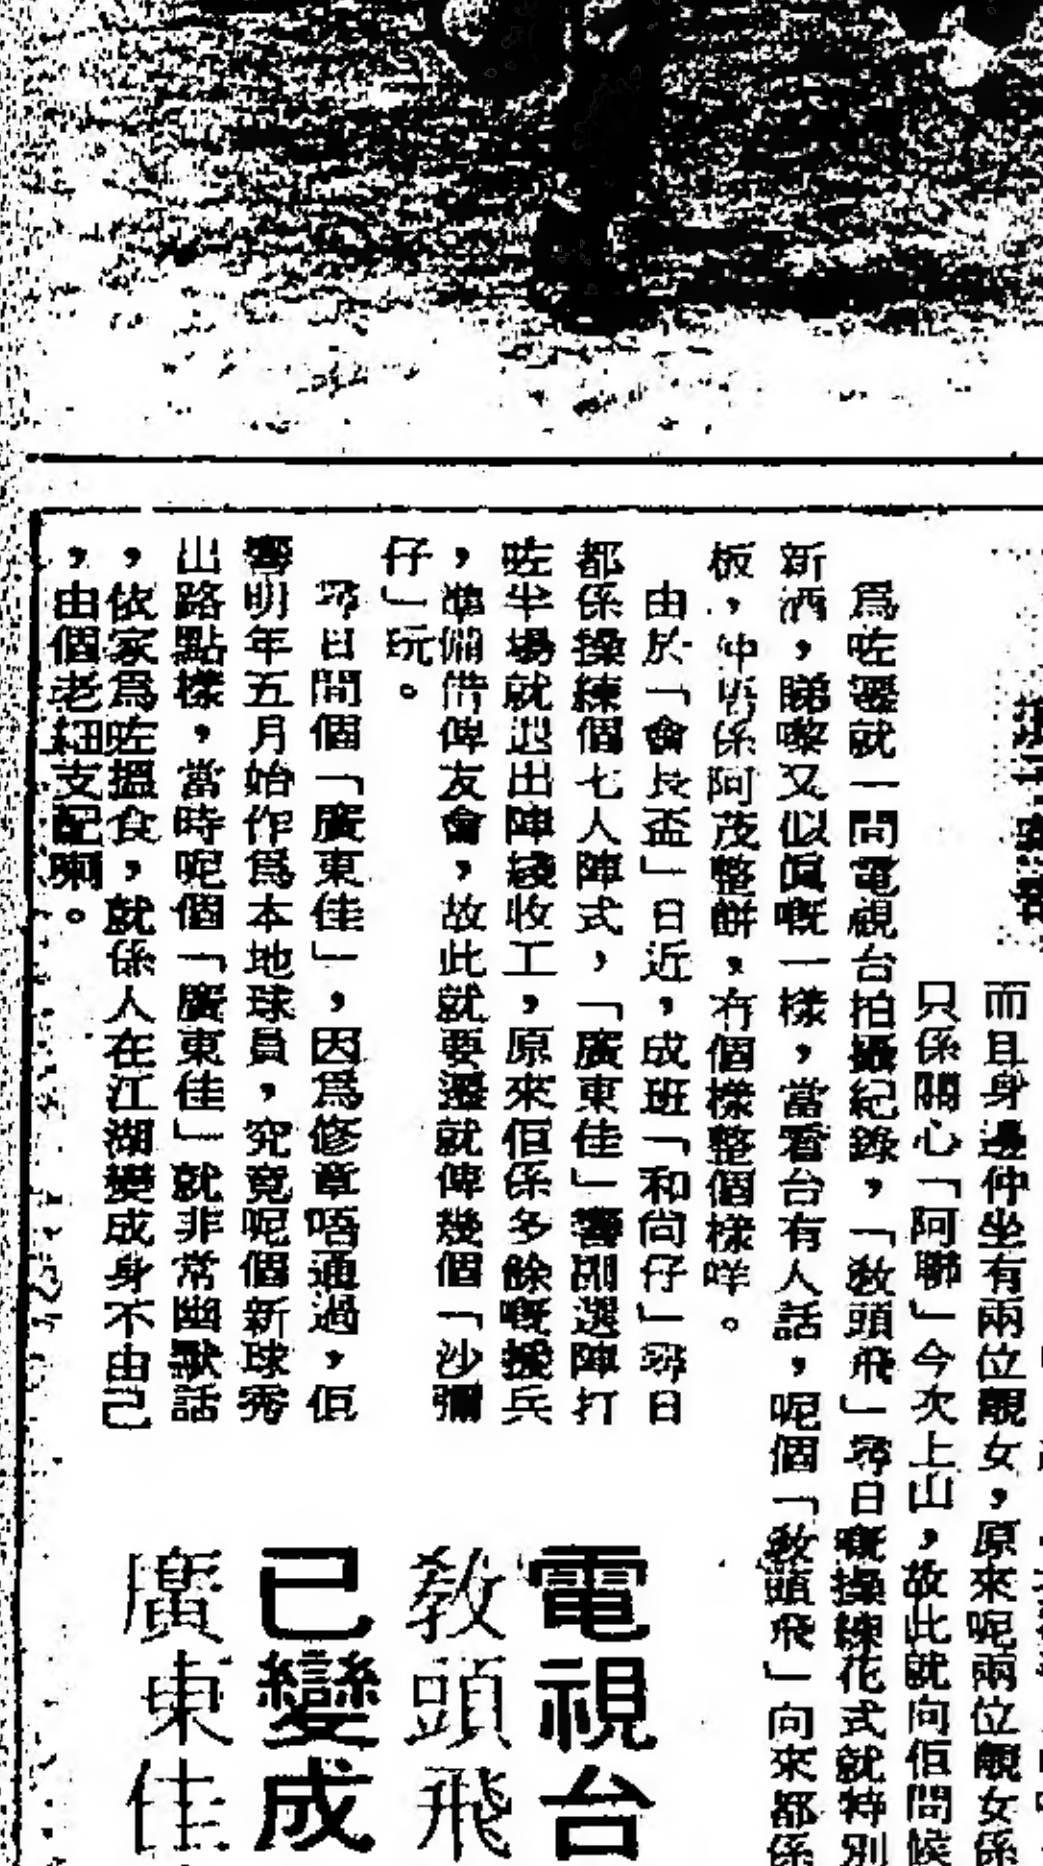 而且身邊仲坐有兩位靚女，原來呢兩位靚女係
只係關心「阿聯」今次上山，故此就向佢問候
為咗遷就一間電視台拍攝紀錄，「教頭飛」尋日嘅操練花式就特別
新洒，睇嚟又似眞嘅一樣，當看台有人話，呢個「教頭飛」向來都係
板，仲唔係阿茂整餅，冇個樣整個樣咩。
由於「會長盃」日近，成班「和尚仔」尋日
都係操練個七人陣式，「廣東佳」響副選陣打
咗半場就退出陣綫收工，原來佢係多餘嘅援兵
，準備借俾友會，故此就要遷就俾幾個「沙彌
仔」玩。
尋日間個「廣東佳」，因為修章唔通過，佢
響明年五月始作為本地球員，究竟呢個新球秀
出路點樣，當時呢個「廣東佳」就非常幽默話
，依家為咗搵食，就係人在江湖變成身不由己
，由個老細支配喇。
電視台
教頭飛
已變成
廣東佳